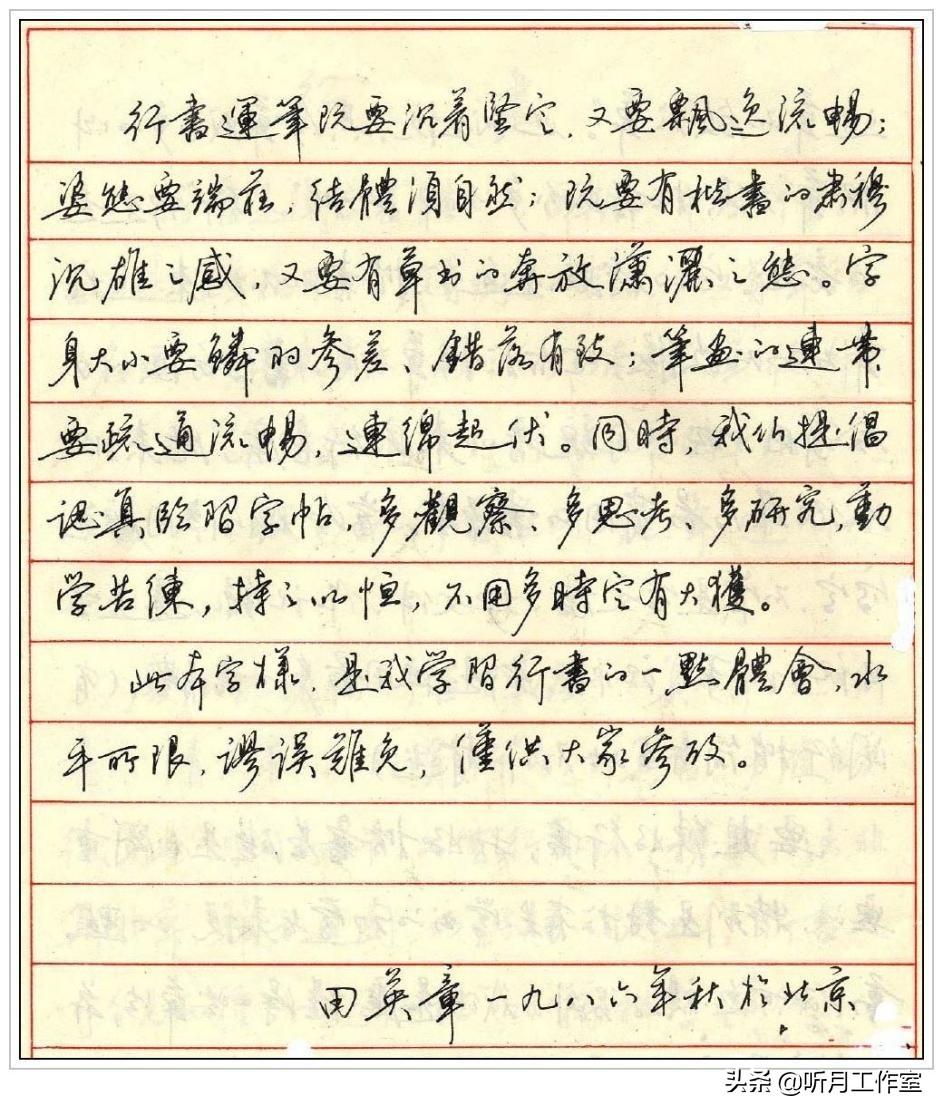 行書運筆既要沉着堅定、又要飄逸流暢；
姿態要端莊，結體須自然；既要有楷書的肅穆
沉雄之感，又要有草书的奔放瀟灑之態。字
身大小要鱗羽參差、錯落有致；筆画的連帶
要疏通流暢，連綿起伏。同時，我们提倡
認真臨習字帖，多觀察、多思考、多研究，勤
学苦練，持之以恒，不用多時定有大獲。
此本字樣，是我学習行書的一點體會，水
平所限，謬误難免，僅供大家參攷。
田英章一九八六年秋於北京
头条 @听月工作室